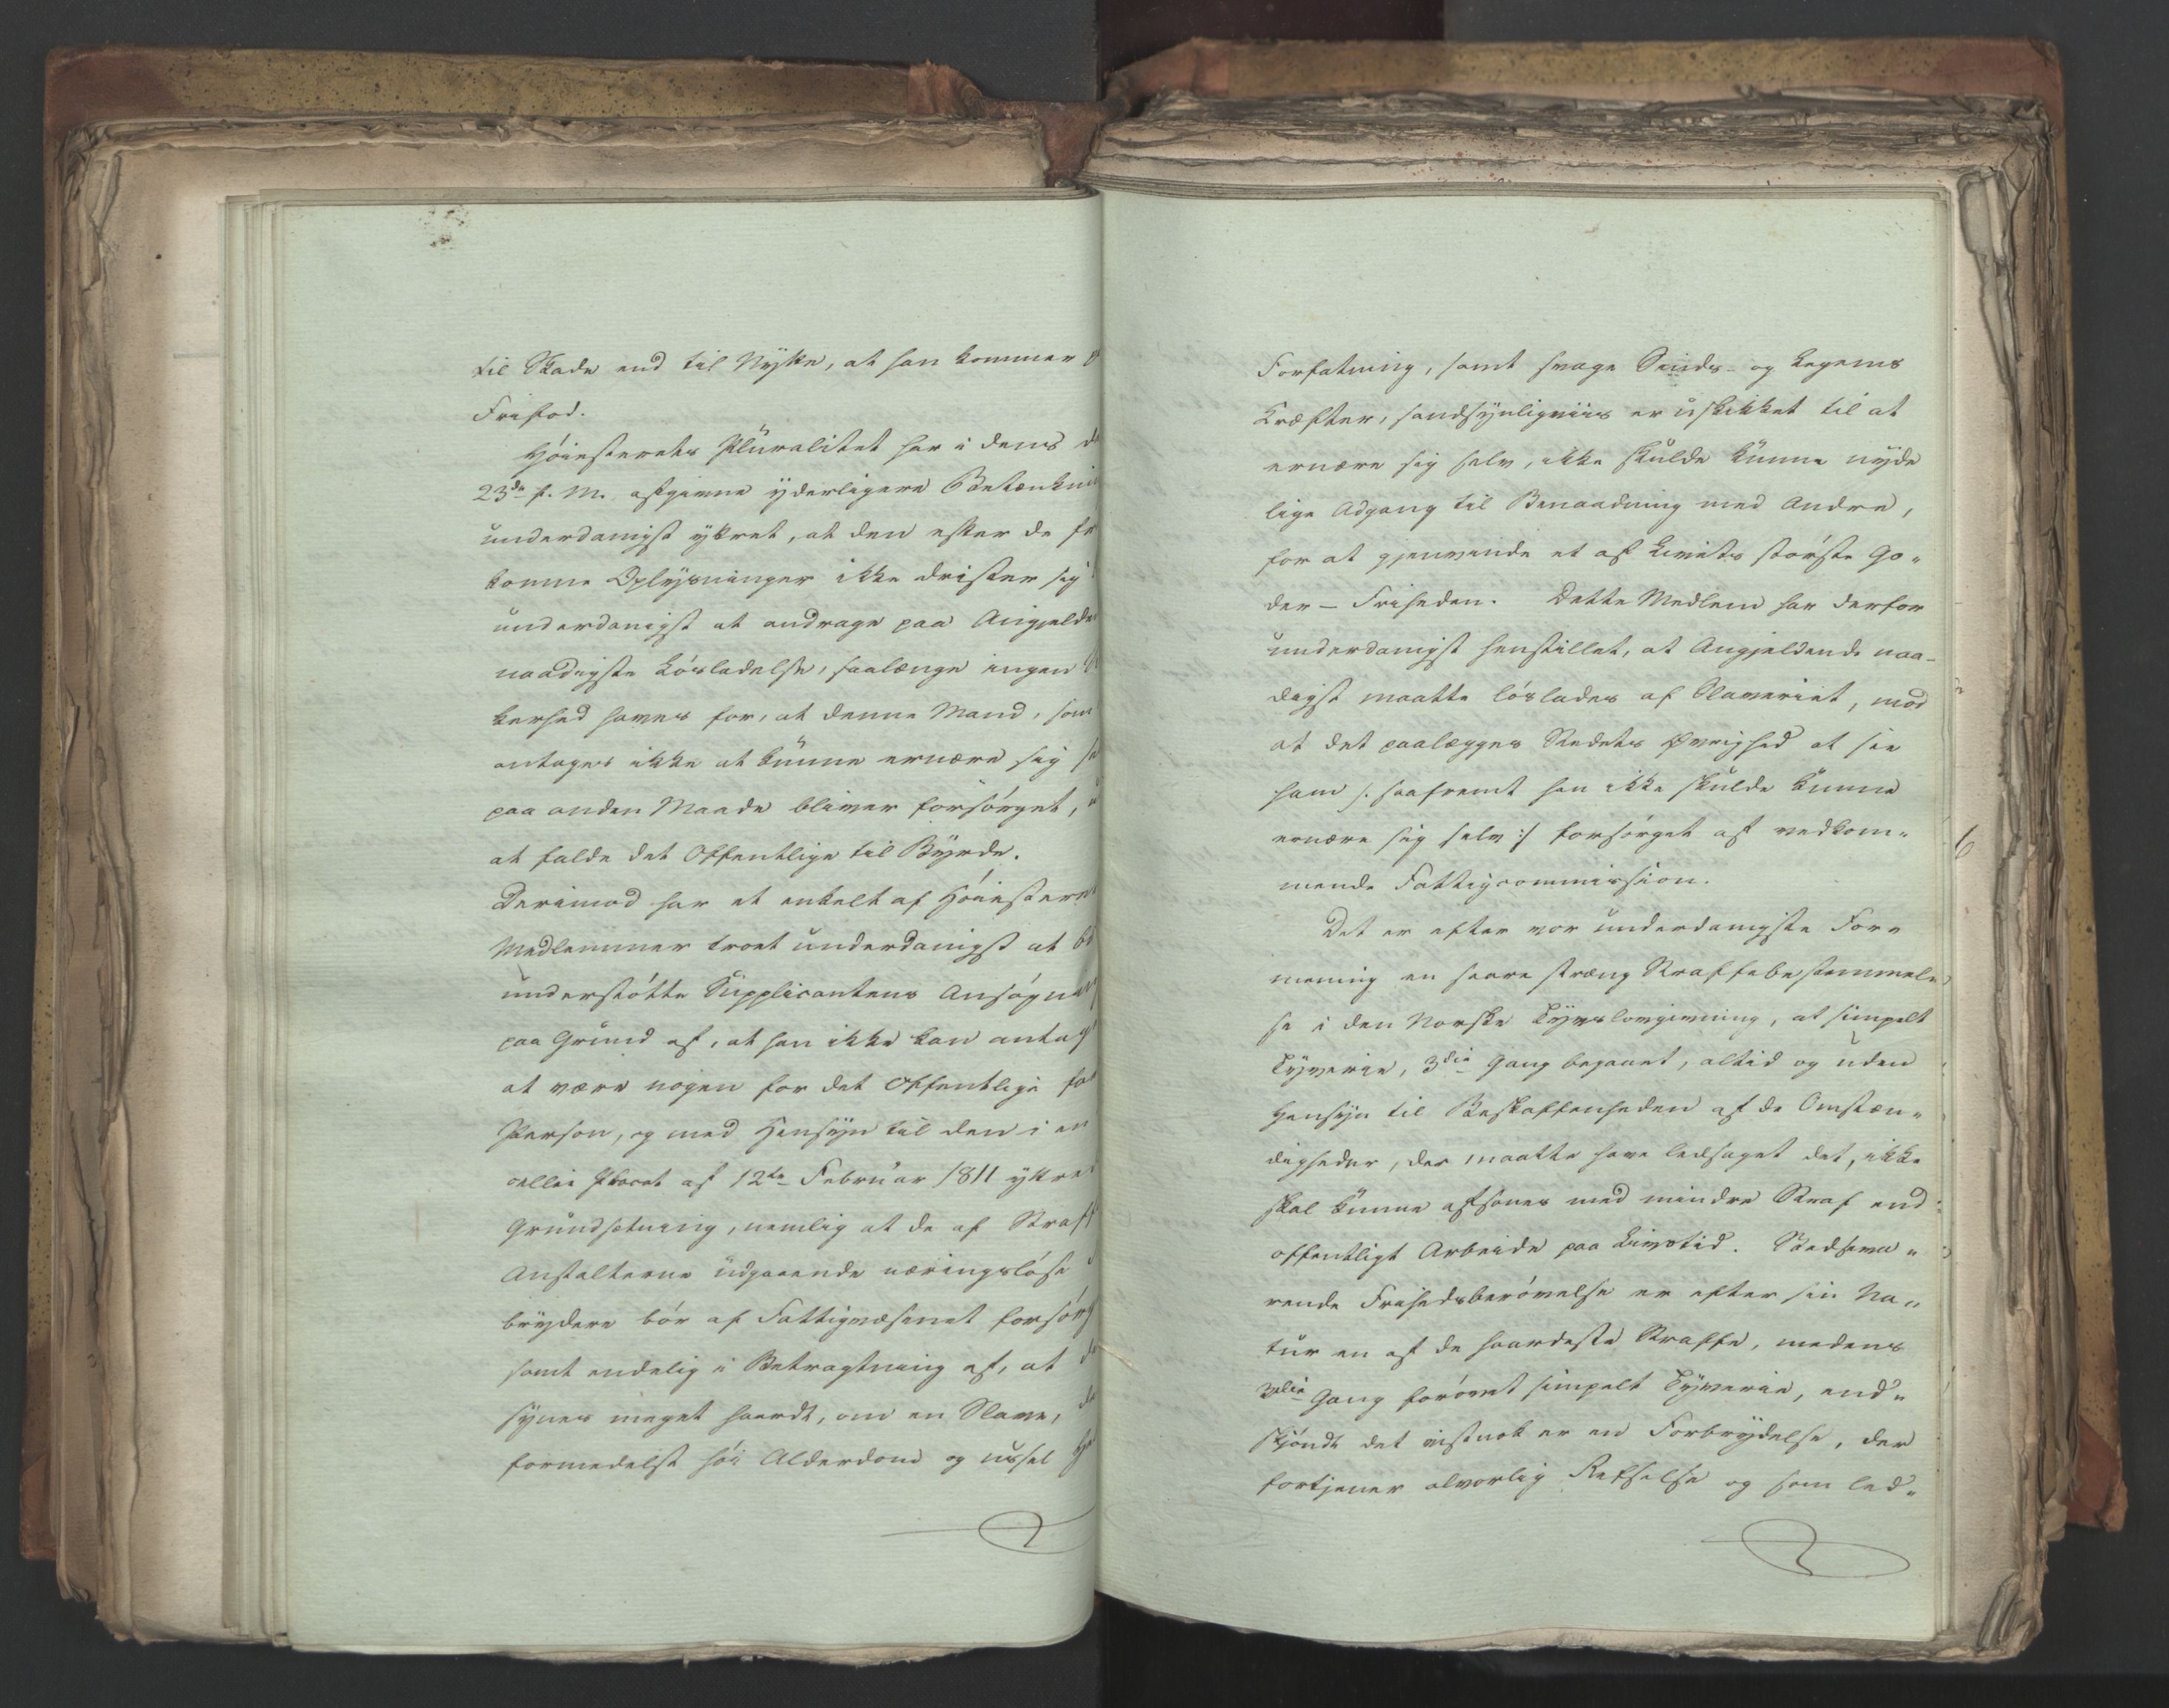 til Skade end til Nytte, at han kommer
Frifod.
Høiesterets Pluralitet har i dens
23de f. M. afgivne yderligere Betænkni
underdanigst yttret, at den efter de fre
komne Oplysninger ikke drister sig
underdanigst at andrage paa Angjelde
naadigste Løsladelse, saalænge ingen
kerhed haves for, at denne Mand, som
antages ikke at kunne ernære sig se
paa anden Maade bliver forsørget,
at falde det Offentlige til Byrde.
Derimod har et enkelt af Høiestere
Medlemmer troet underdanigst at b
understøtte Supplicantens Ansøgning
paa Grund af, at han ikke kan antag
at være nogen for det Offentlige fa
Person, og med Hensyn til den i
cellie Placat af 12te Februar 1811 yttre
Grundsætning, nemlig at de af Straf
Anstalterne udgaaende næringsløse
brydere bør af Fattigvæsenet forsørg
samt endelig i Betragtning af, at de
synes meget haardt, om en Slave, de
formedelst høi Alderdom og ussel He
Forfatning, samt svage Sinds- og Legems
Kræfter, sandsynligviis er uskikket til at
ernære sig selv, ikke skulde kunne nyde
lige Adgang til Benaadning med Andre,
for at gjenvinde et af Livets største Go„
der – Friheden. Dette Medlem har derfor
underdanigst henstillet, at Angjeldende naa-
digst maatte løslades af Slaveriet, mod
at det paalægges Stedets Øvrighed at see
ham /: saafremt han ikke skulde kunne
ernære sig selv :/ forsørget af vedkom„
mende Fattigcommission.
Det er efter vor underdanigste For„
mening en haare stræng Straffebestemmel„
se i den Norske Tyvslovgivning, at simpelt
Tyverie, 3die Gang begaaet, altid og uden
Hensyn til Beskaffenheden af de Omstæn„
digheder, der maatte have ledsaget det, ikke
skal kunne afsones med mindre Straf end
offentligt Arbeide paa Livstid. Stedseva„
rende Frihedsberøvelse er efter sin Na„
tur en af de haardeste Straffe, medens
3die Gang forøvet simpelt Tyverie, end„
skjøndt det vistnok er en Forbrydelse, der
fortjener alvorlig Refselse og som led„